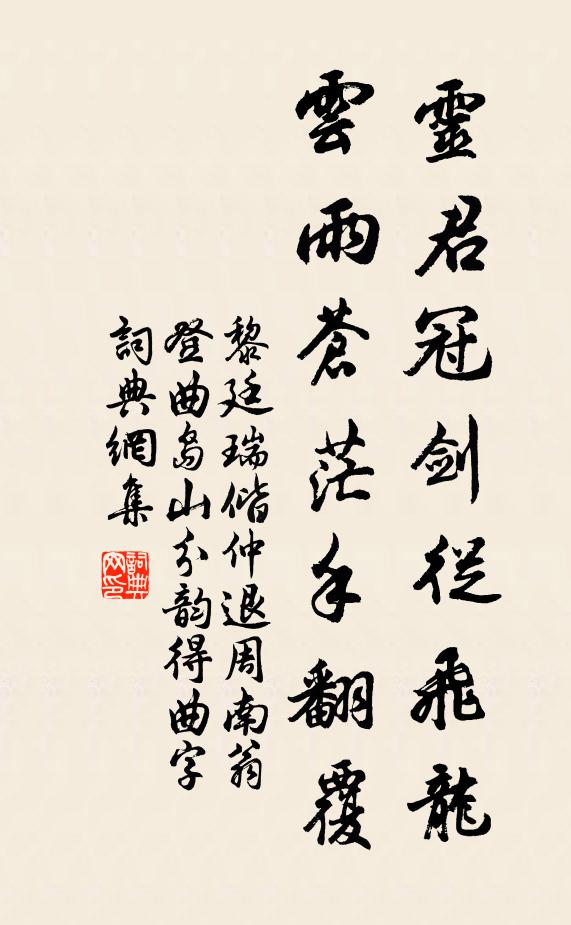 靈君冠劍從飛龍
雲雨蒼茫手翻覆
黎廷瑞偕仲退周南翁
登曲島山分韵得曲字
詞典網集
詞典網印